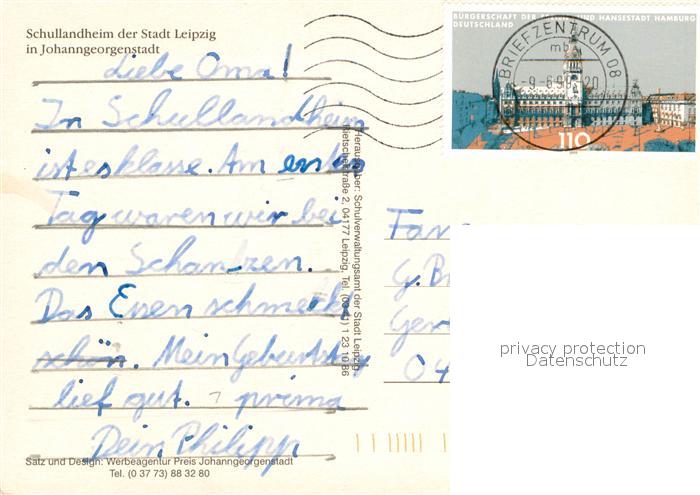 Schullandheim der Stadt Leipzig
in Johanngeorgenstadt
Liebe Oma!
In Schullandheim
ist es klasse. Am ersten
Tag waren wir bei
den Schanzen.
Das Essen schmeckt
schön. Mein Geburtstag
lief gut. prima
Dein Philipp
Satz und Design: Werbeagentur Preis Johanngeorgenstadt
Tel. (0 37 73) 88 32 80
Herausgeber: Schulverwaltungsamt der Stadt Leipzig,
straße 2, 04177 Leipzig, Tel. (03 41) 1 23 10 86
BÜRGERSCHAFT DER FREIEN UND HANSESTADT HAMBURG
DEUTSCHLAND
110
BRIEFZENTRUM 08
mb
Fam
G. Br
Ger
04
privacy protection
Datenschutz